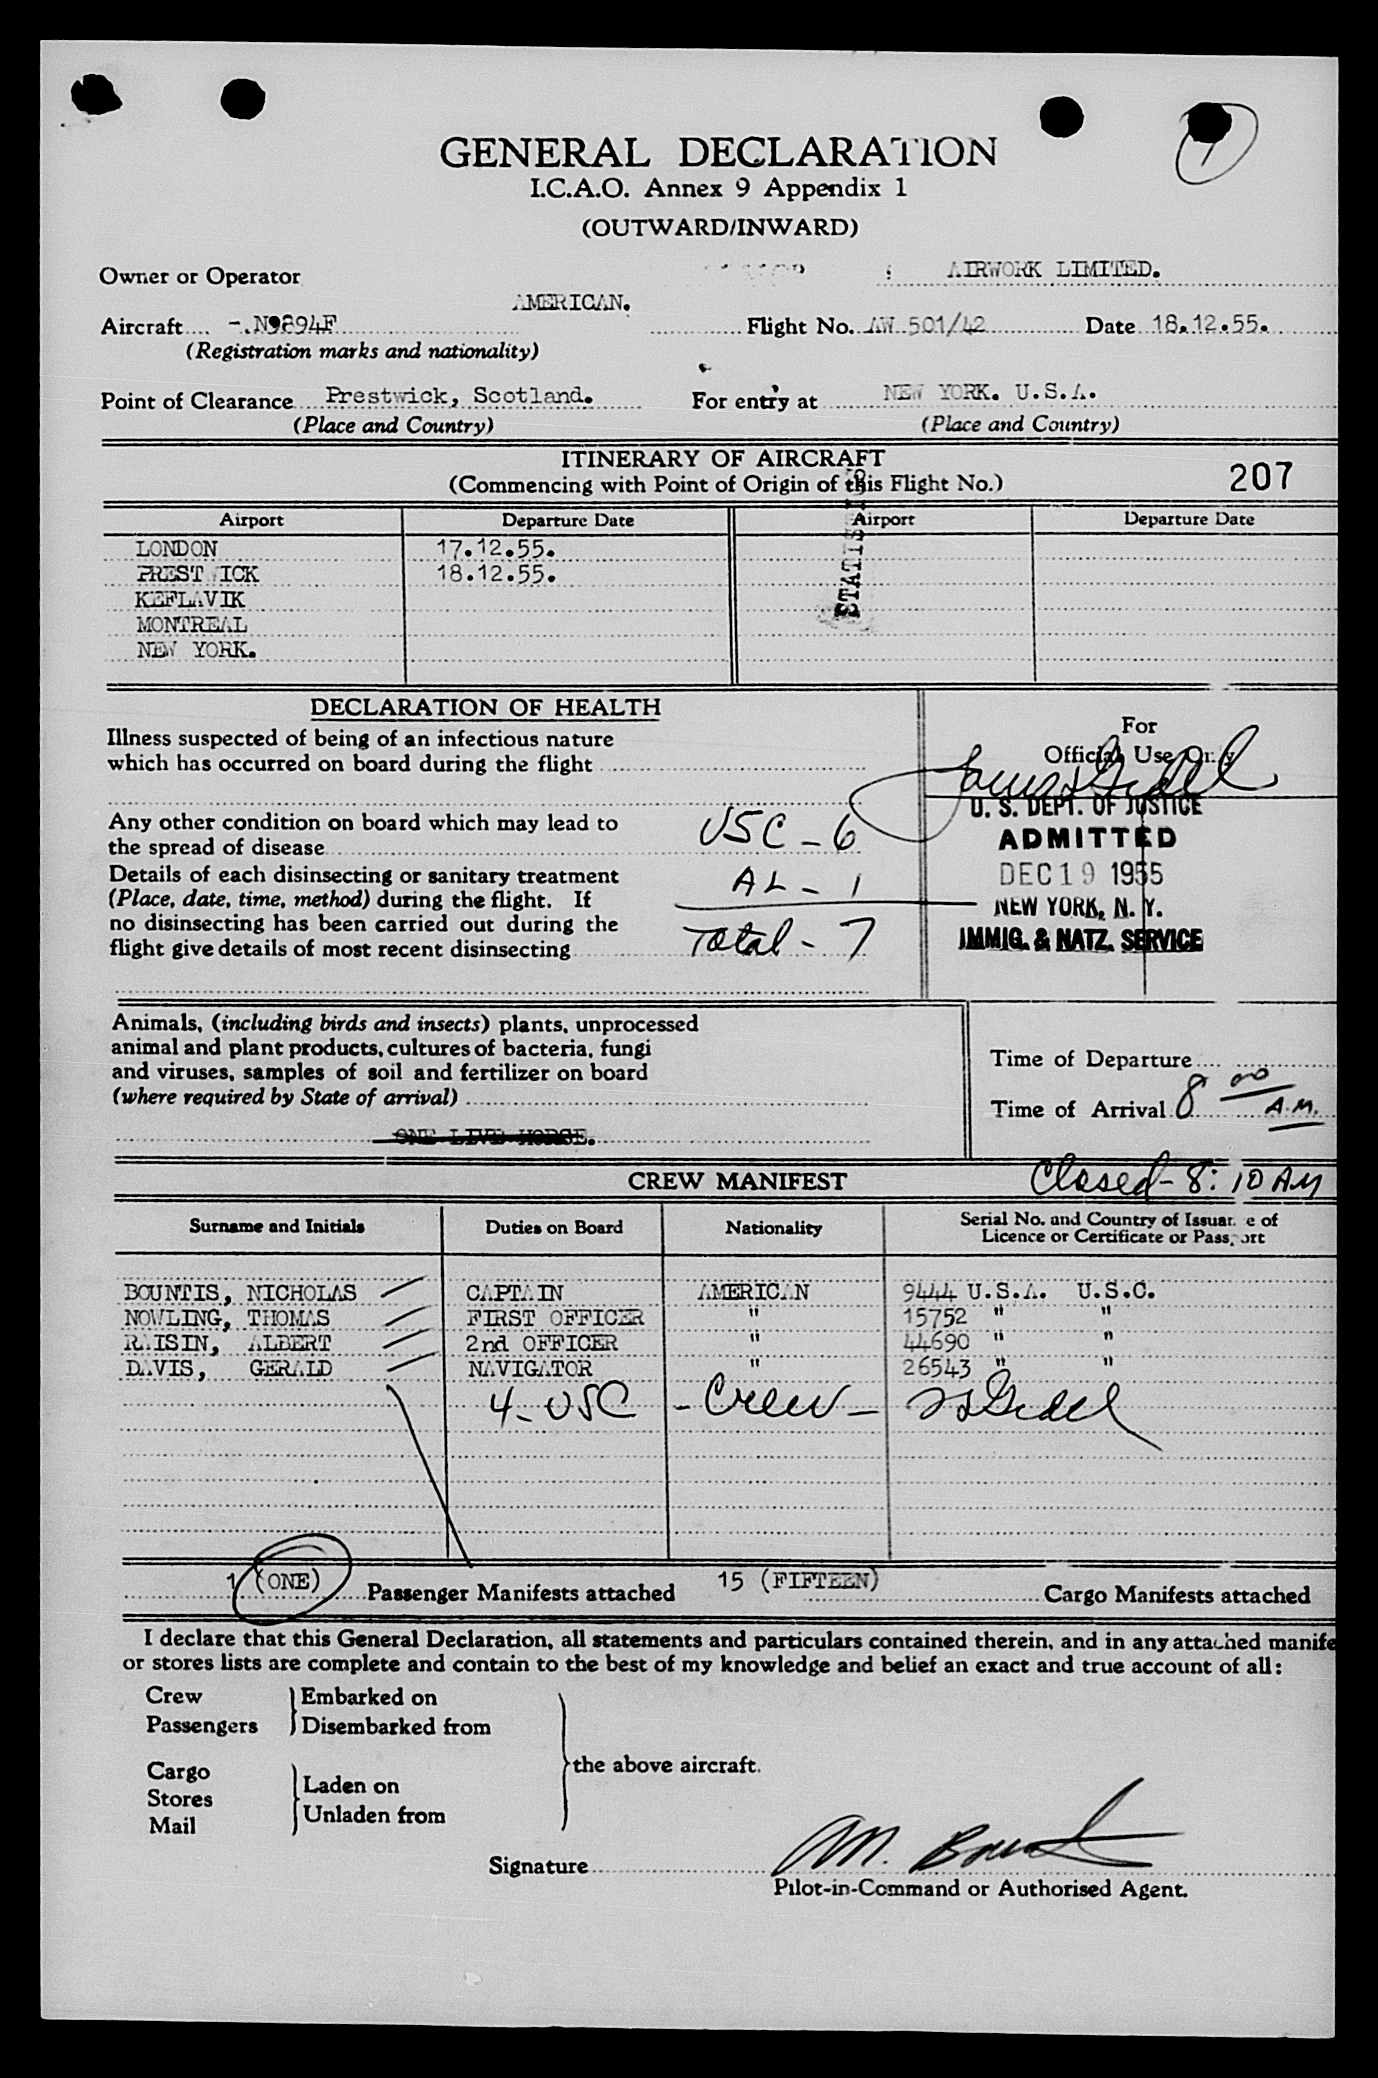 GENERAL DECLARATION
I.C.A.O. Annex 9 Appendix 1
(OUTWARD/INWARD)
1
Owner or Operator AIRWORK LIMITED.
AMERICAN.
Aircraft - N9894F Flight No. AW 501/42 Date 18.12.55.
(Registration marks and nationality)
Point of Clearance Prestwick, Scotland. For entry at NEW YORK. U.S.A.
(Place and Country) (Place and Country)
ITINERARY OF AIRCRAFT
(Commencing with Point of Origin of this Flight No.)
207
Airport Departure Date Airport Departure Date
LONDON 17.12.55.
PRESTWICK 18.12.55.
KEFLAVIK
MONTREAL
NEW YORK.
DECLARATION OF HEALTH
Illness suspected of being of an infectious nature
which has occurred on board during the flight
Any other condition on board which may lead to
the spread of disease
Details of each disinsecting or sanitary treatment
(Place, date, time, method) during the flight. If
no disinsecting has been carried out during the
flight give details of most recent disinsecting
USC - 6
AL - 1
Total - 7
For
Official Use Only
U. S. DEPT. OF JUSTICE
ADMITTED
DEC 19 1955
NEW YORK, N. Y.
IMMIG. & NATZ. SERVICE
Animals, (including birds and insects) plants, unprocessed
animal and plant products, cultures of bacteria, fungi
and viruses, samples of soil and fertilizer on board
(where required by State of arrival)
ONE LIVE HORSE.
Time of Departure
Time of Arrival 8 00 A.M.
CREW MANIFEST
Closed - 8:10 AM
Surname and Initials Duties on Board Nationality Serial No. and Country of Issuance of
Licence or Certificate or Passport
BOUNTIS, NICHOLAS CAPTAIN AMERICAN 9444 U.S.A. U.S.C.
NOWLING, THOMAS FIRST OFFICER " 15752 " "
RAISIN, ALBERT 2nd OFFICER " 44690 " "
DAVIS, GERALD NAVIGATOR " 26543 " "
4 - USC - Crew -
1 (ONE) Passenger Manifests attached 15 (FIFTEEN) Cargo Manifests attached
I declare that this General Declaration, all statements and particulars contained therein, and in any attached manife
or stores lists are complete and contain to the best of my knowledge and belief an exact and true account of all:
Crew Embarked on
Passengers Disembarked from
the above aircraft.
Cargo
Stores Laden on
Mail Unladen from
Signature
Pilot-in-Command or Authorised Agent.